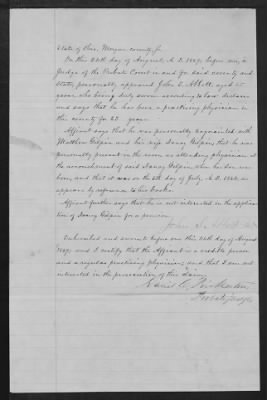 State of Ohio, Morgan county, ss
On this 24th day of August, A.D. 1889, before me, a
Judge of the Probate Court in and for said county and
state, personally appeared John E. aged 65
years who being duly sworn according to law declares
and says that he has been a practicing physician in
this county for years
Affiant says that he was personally acquainted with
Matthew Gilpin and his wife Gilpin; that he was
personally present in the room as attending physician at
the accouchement of said Gilpin when her son was
born, and that it was on the 5th day of July, A.D. as
appears by reference to his books.
Affiant further says that he is not interested in the applica-
tion of Gilpin for a pension.
John
Subscribed and sworn to before me this 24th day of August
1889 and I certify that the Affiant is a credible person
and a regular practicing physician; and that I am not
interested in the prosecution of this claim.
Probate Judge